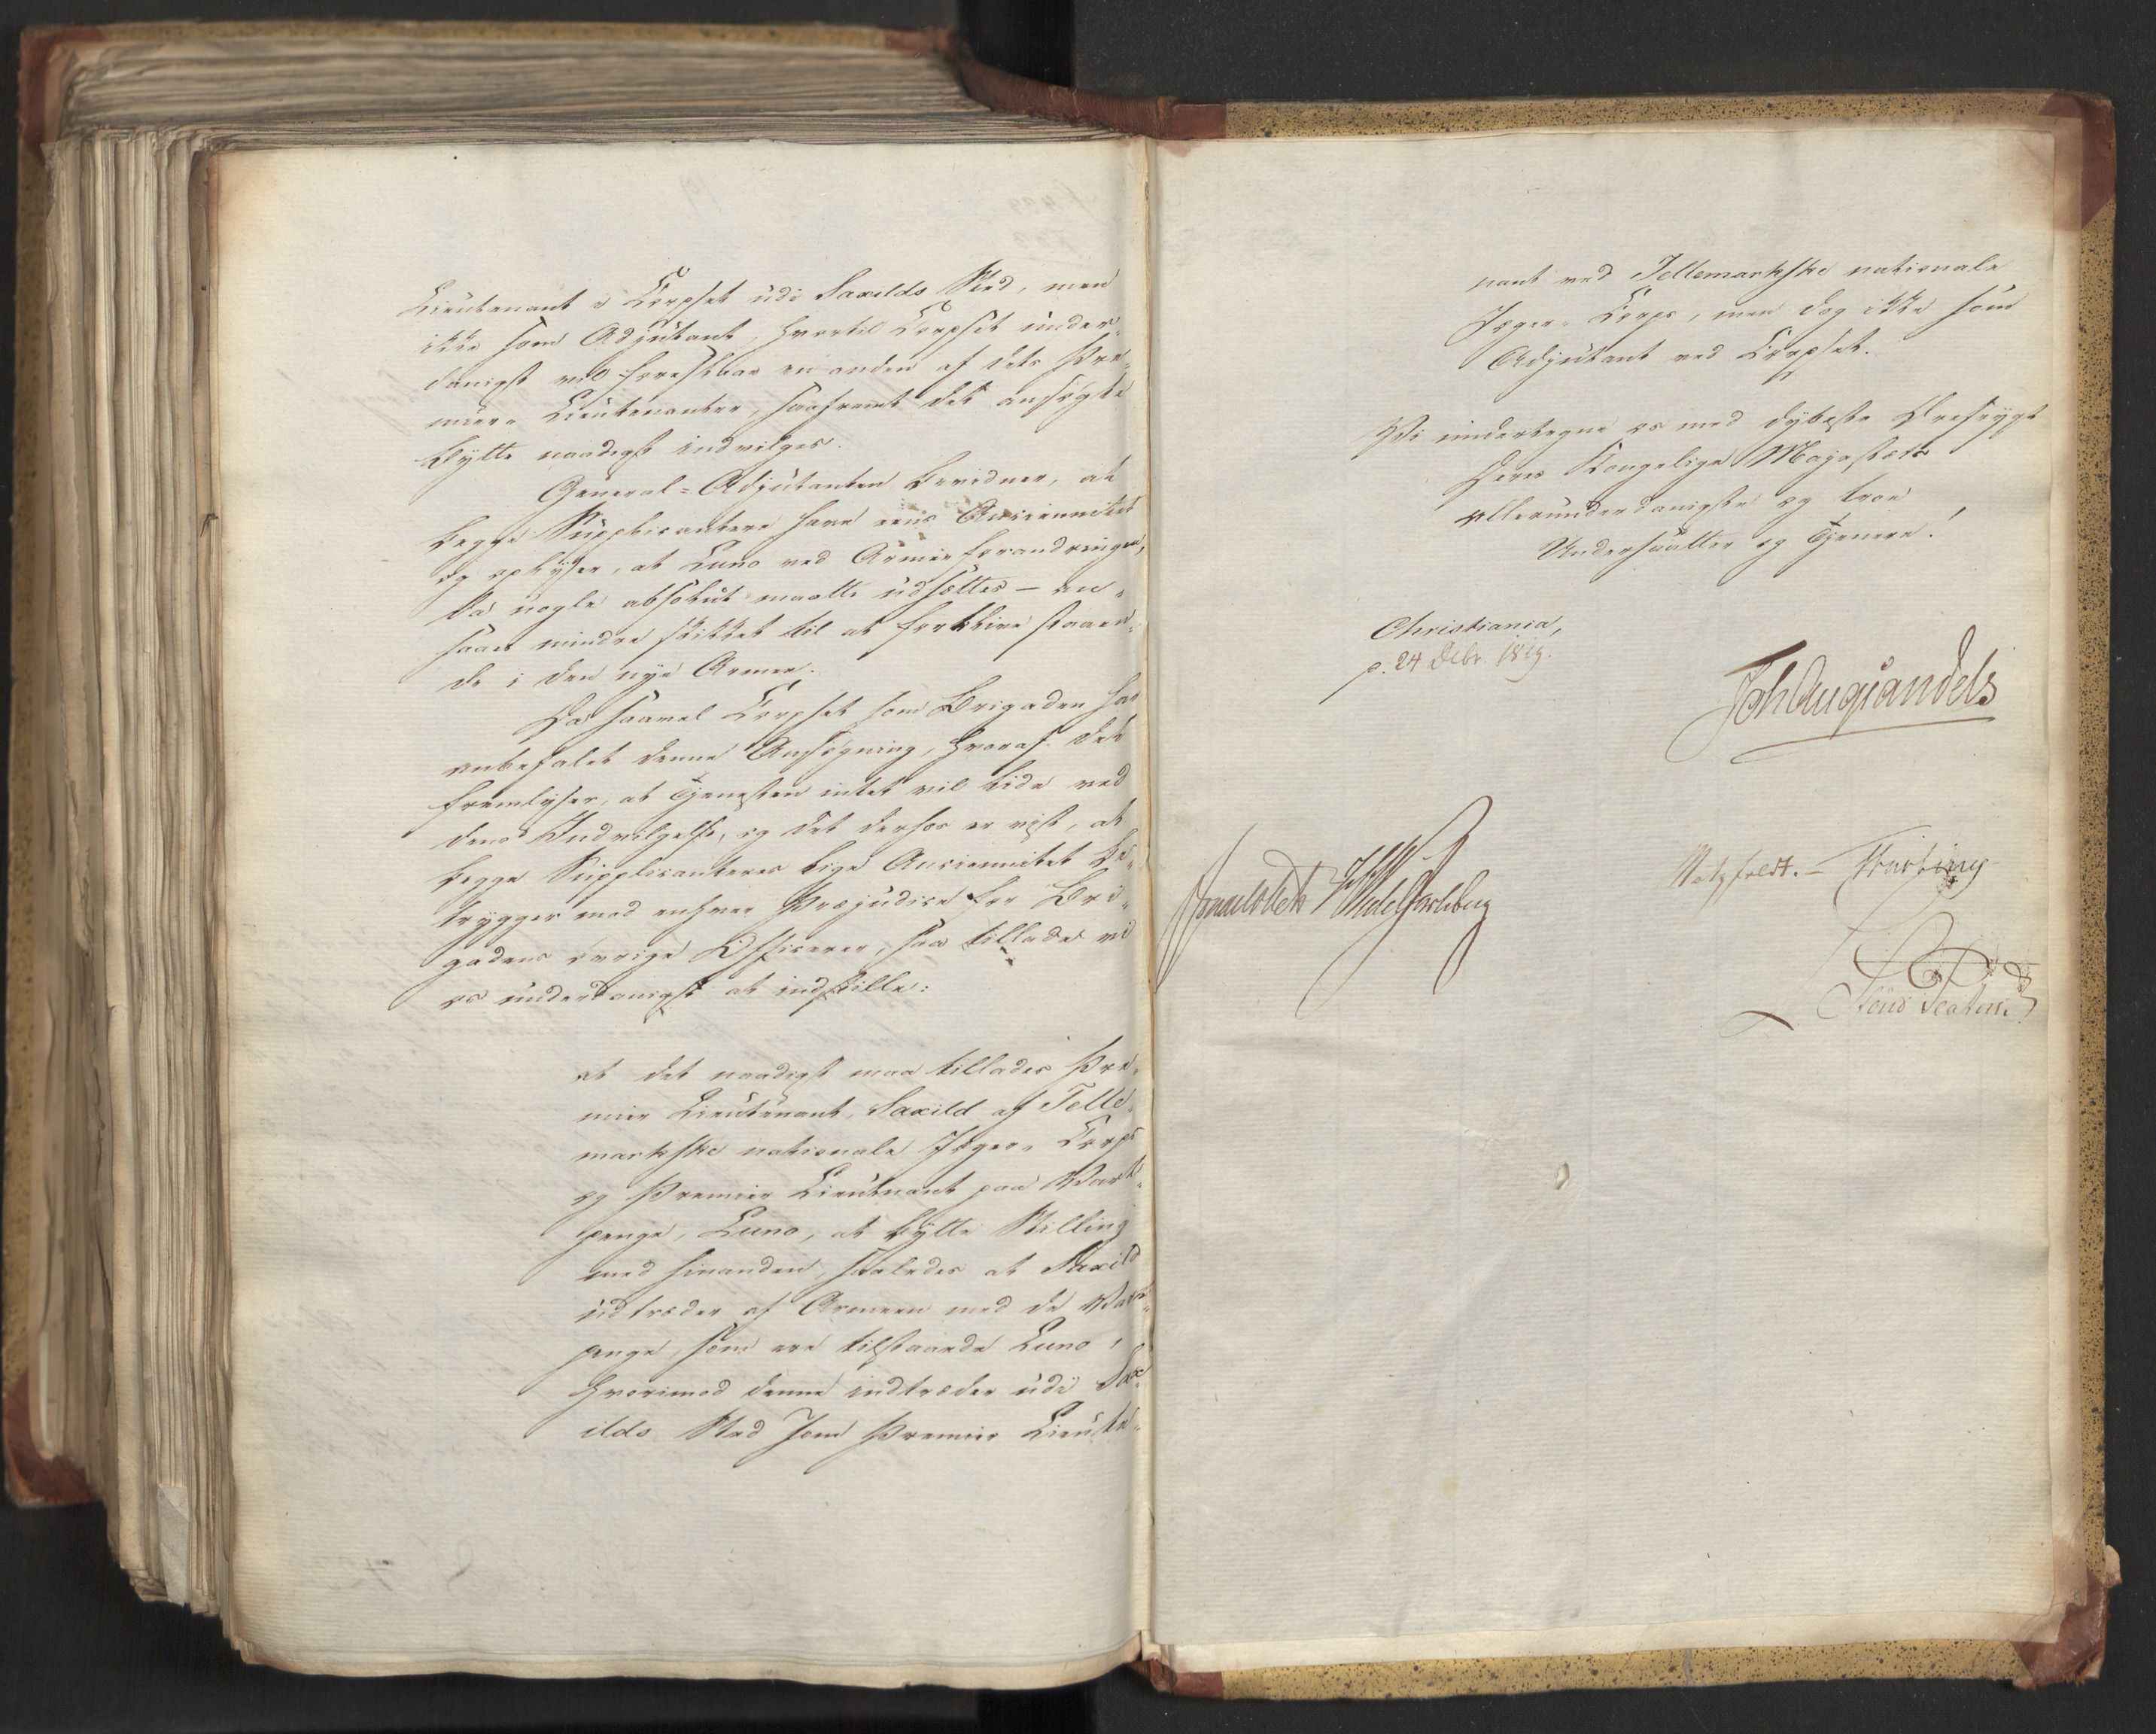 Lieutenant i Corpset udi Saxilds Sted, men
ikke som Adjutant, hvortil Corpset under-
danigst vil foreslaae en anden af dets Pre-
mier-Lieutenanter, saafremt det ansøgte
Bytte naadigst indvilges.
General-Adjutanten bevidner, at
begge Supplicantere have eens Anciennitet
og oplyser, at Luno ved Armeeforandringen,
da nogle absolut maatte udsættes – an-
saaes mindre skikket til at forblive staaen-
de i den nye Armee.
Da saavel Corpset som Brigaden har
anbefalet denne Ansøgning, hvoraf det
fremlyser, at Tjenesten intet vil lide ved
dens Indvilgelse, og det derhos er vist, at
begge Supplicanteres lige Anciennitet be-
trygger mod enhver Præjudice for Bri-
gadens øvrige Officerer, saa tillade vi
os underdanigst at indstille:
at det naadigst maa tillades Pre-
mier Lieutenant Saxild af Telle-
markske nationale Jæger-Corps
og Premier Lieutenant paa Vart-
penge, Luno, at bytte Stilling
med hinanden, saaledes at Saxild
udtræder af Armeen med de Vart-
penge, som ere tilstaaede Luno,
hvorimod denne indtræder udi Sax-
ilds Sted som Premier Lieute-
nant ved Tellemarkske nationale
Jæger-Corps, men dog ikke som
Adjutant ved Corpset.
Vi undertegne os med dybeste Ærefrygt
Deres Kongelige Majestæts
allerunderdanigste og troe
Undersaatter og Tjenere!
Christiania,
p. 24 Debr. 1819.
Joh Aug Sandels
Sommerfeldt JHWedel Jarlsberg
Motzfeldt. – Fasting